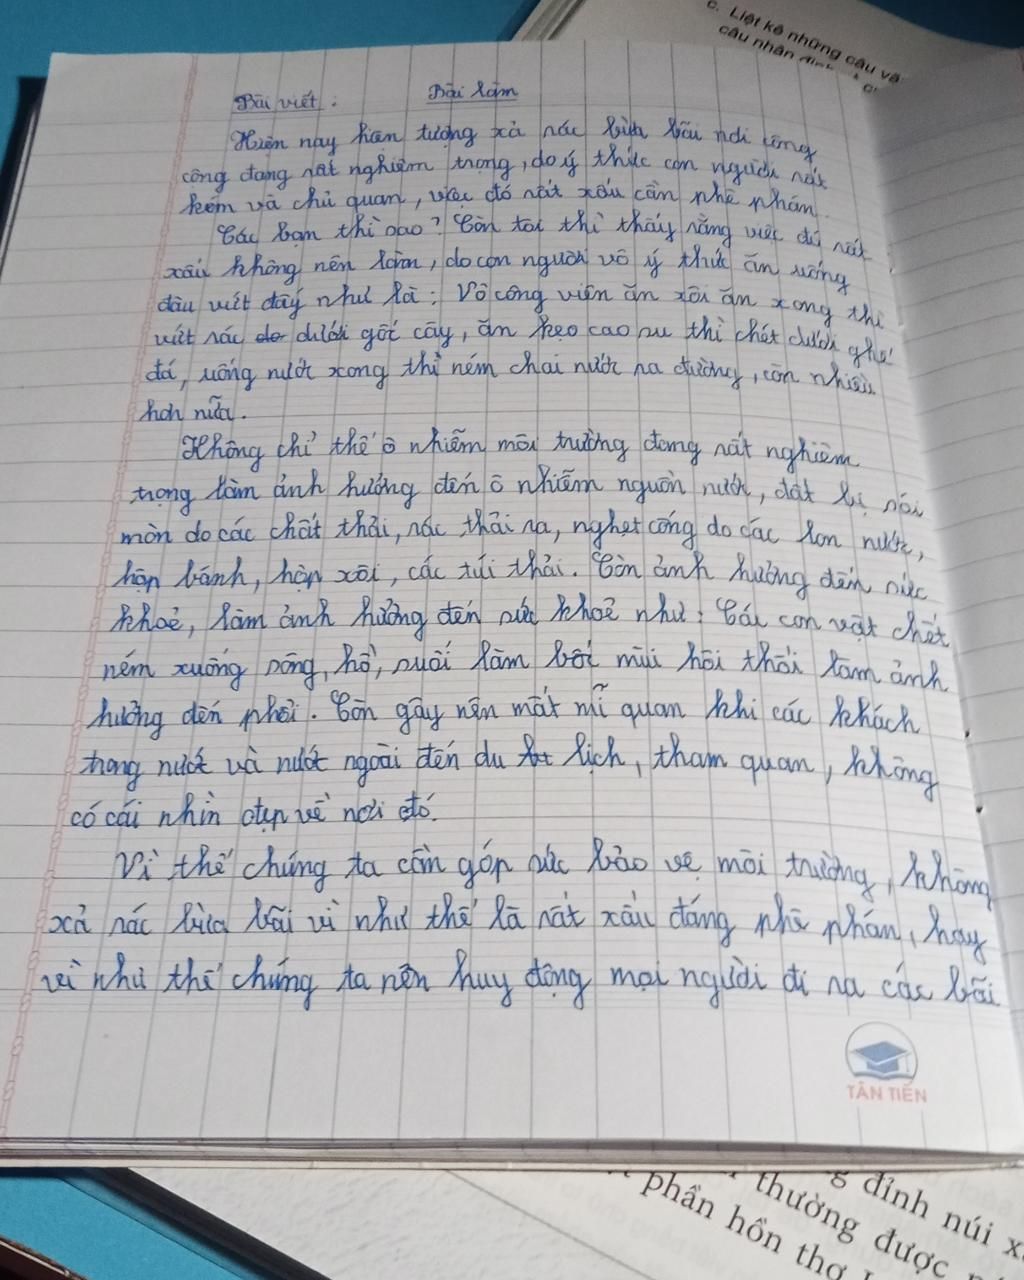 c. Liệt kê những câu vă
câu nhân
Bài viết: Bài làm
Hiện nay hiện tượng xả rác bừa bãi nơi công
cộng đang rất nghiêm trọng, do ý thức con người rất
kém và chủ quan, việc đó rất xấu cần phê phán.
Các bạn thì sao? Còn tôi thì thấy rằng việc đó rất
xấu không nên làm, do con người vô ý thức ăn uống
đâu vứt đấy như là: Vô công viên ăn xôi ăn xong thì
vứt rác dưới gốc cây, ăn kẹo cao su thì chét dưới ghế
đá, uống nước xong thì ném chai nước ra đường, còn nhiều
hơn nữa.
Không chỉ thế ô nhiễm môi trường đang rất nghiêm
trọng làm ảnh hưởng đến ô nhiễm nguồn nước, đất bị sói
mòn do các chất thải, rác thải ra, nghẹt cống do các lon nước,
hộp bánh, hộp xôi, các túi thải. Còn ảnh hưởng đến sức
khoẻ, làm ảnh hưởng đến sức khoẻ như: Các con vật chết
ném xuống sông, hồ, suối làm bốc mùi hôi thối làm ảnh
hưởng đến phổi. Còn gây nên mất mĩ quan khi các khách
trong nước và nước ngoài đến du lịch, tham quan, không
có cái nhìn đẹp về nơi đó.
Vì thế chúng ta cần góp sức bảo vệ môi trường, không
xả rác bừa bãi vì như thế là rất xấu đáng phê phán, hay
vì như thế chúng ta nên huy động mọi người đi ra các bãi
TÂN TIẾN
g đỉnh núi x
thường được
phần hồn thơ